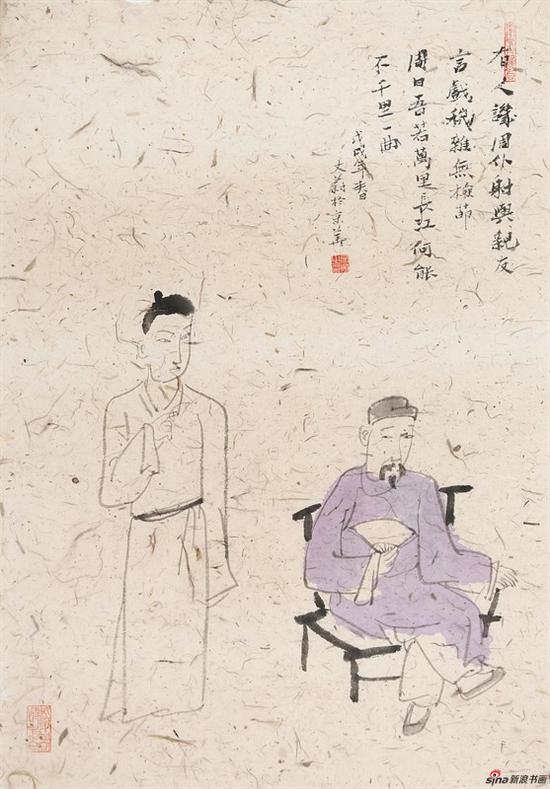 有人譏周仆射與親友
言戲穢雜無檢節
周曰吾若萬里長江何能
不千里一曲
戊戌年春
文蔚於京華
sina新浪书画